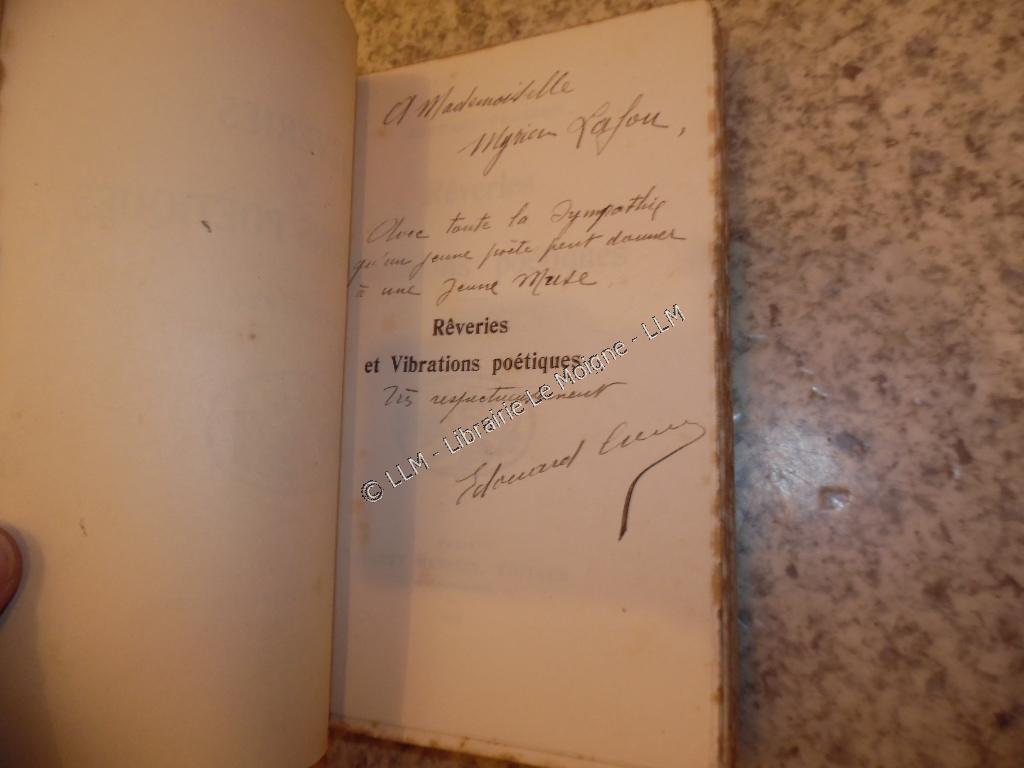 A Mademoiselle
Lafon,
Avec toute la Sympathie
qu'un jeune poète peut donner
à une Jeune Muse
Rêveries
et Vibrations poétiques
Très respectueusement
Edouard
© LLM - Librairie Le Moigne - LLM